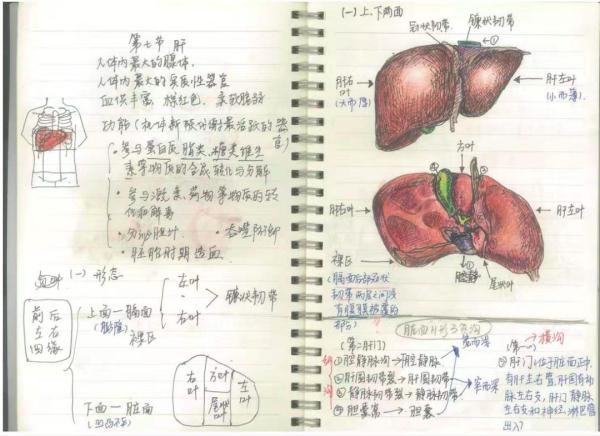 第七节 肝
人体内最大的腺体.
人体内最大的实质性器官
血供丰富, 棕红色, 柔软脆弱
功能(机体新陈代谢最活跃的器官)
·参与蛋白质 脂类、糖类维生
素等物质的合成 转化与分解
·参与激素、药物等物质的转
化和解毒
·分泌胆汁 ·吞噬防御
·胚胎时期造血
(一) 形态
前后
左右
四缘
上面一膈面
(膨隆)
裸区
左叶
右叶
镰状韧带
下面一脏面
右叶
方叶
尾状叶
左叶
(一)上、下两面
冠状韧带
镰状韧带
①
肝右叶
(大而厚)
肝左叶
(小而薄)
方叶
肝右叶
肝左叶
尾状叶
裸区
(膈面后部冠状
韧带两层之间没
有腹膜被覆的
部分)
脏面H形3条沟
(第二肝门)
①腔静脉沟→下腔静脉
②肝圆韧带裂→肝圆韧带
③静脉韧带裂→静脉韧带
④胆囊窝→胆囊
(第一)→横沟
⑤肝门:位于脏面正中,
有肝左右管,肝固有动
脉左右支,肝门静脉
左右支和神经、淋巴管
出入